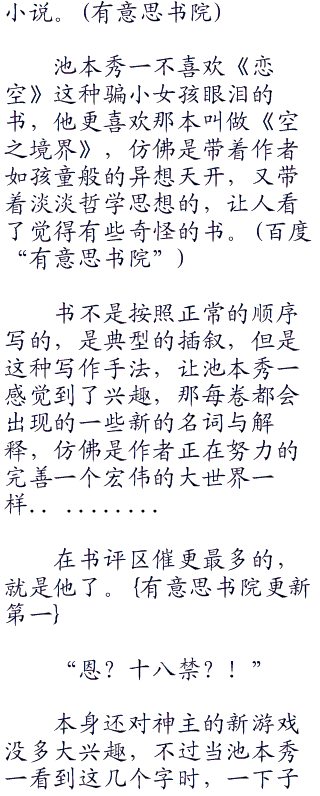 小说。(有意思书院)
池本秀一不喜欢《恋
空》这种骗小女孩眼泪的
书，他更喜欢那本叫做《空
之境界》，仿佛是带着作者
如孩童般的异想天开，又带
着淡淡哲学思想的，让人看
了觉得有些奇怪的书。(百度
“有意思书院”)
书不是按照正常的顺序
写的，是典型的插叙，但是
这种写作手法，让池本秀一
感觉到了兴趣，那每卷都会
出现的一些新的名词与解
释，仿佛是作者正在努力的
完善一个宏伟的大世界一
样.. ........
在书评区催更最多的，
就是他了。{有意思书院更新
第一}
“恩？十八禁？！”
本身还对神主的新游戏
没多大兴趣，不过当池本秀
一看到这几个字时，一下子